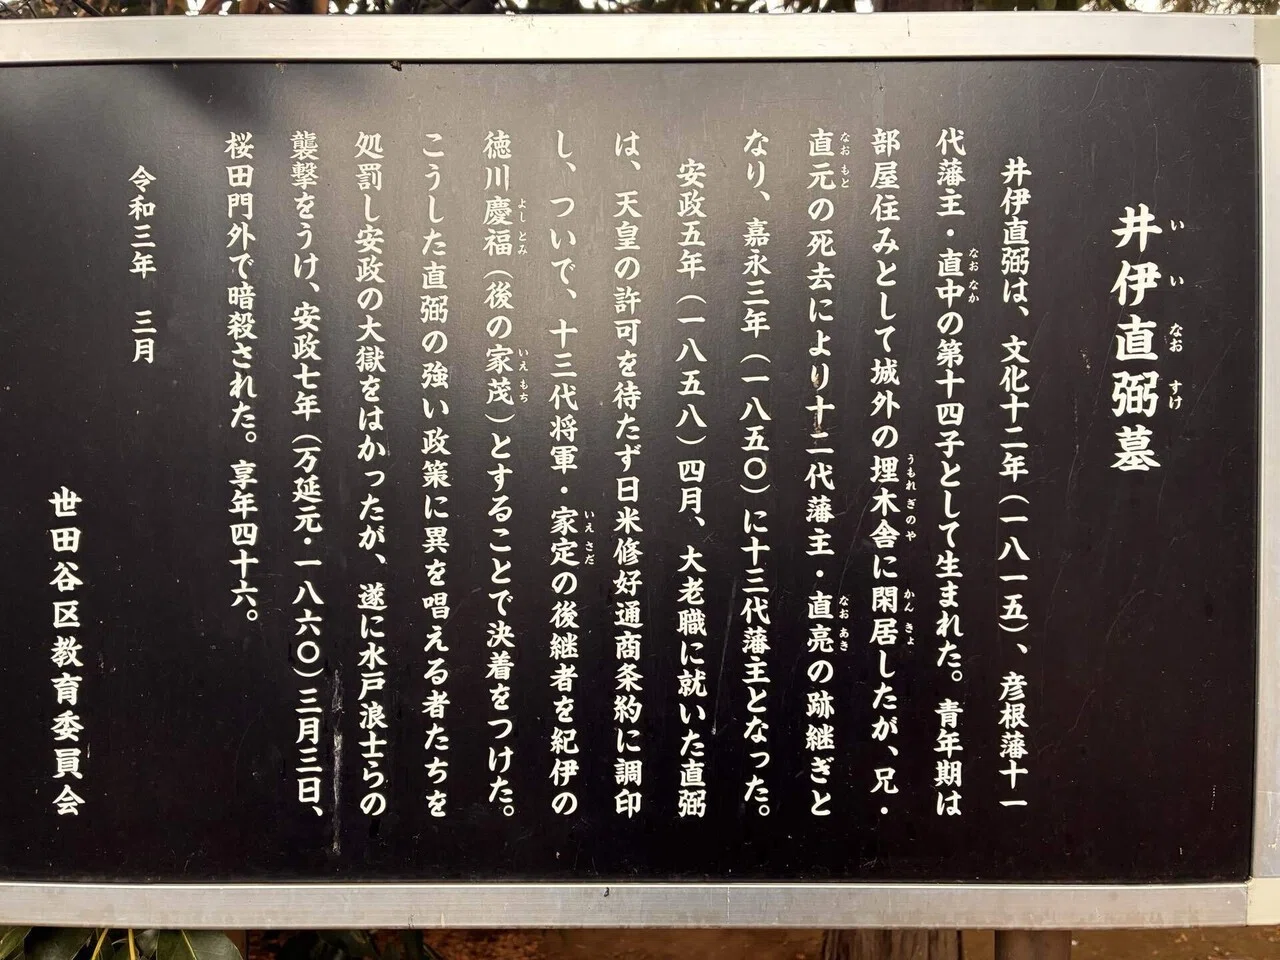 井伊直弼墓
井伊直弼は、文化十二年（一八一五）、彦根藩十一
代藩主・直中の第十四子として生まれた。青年期は
部屋住みとして城外の埋木舎に閑居したが、兄・
直元の死去により十二代藩主・直亮の跡継ぎと
なり、嘉永三年（一八五〇）に十三代藩主となった。
安政五年（一八五八）四月、大老職に就いた直弼
は、天皇の許可を待たず日米修好通商条約に調印
し、ついで、十三代将軍・家定の後継者を紀伊の
徳川慶福（後の家茂）とすることで決着をつけた。
こうした直弼の強い政策に異を唱える者たちを
処罰し安政の大獄をはかったが、遂に水戸浪士らの
襲撃をうけ、安政七年（万延元・一八六〇）三月三日、
桜田門外で暗殺された。享年四十六。
令和三年　三月
世田谷区教育委員会